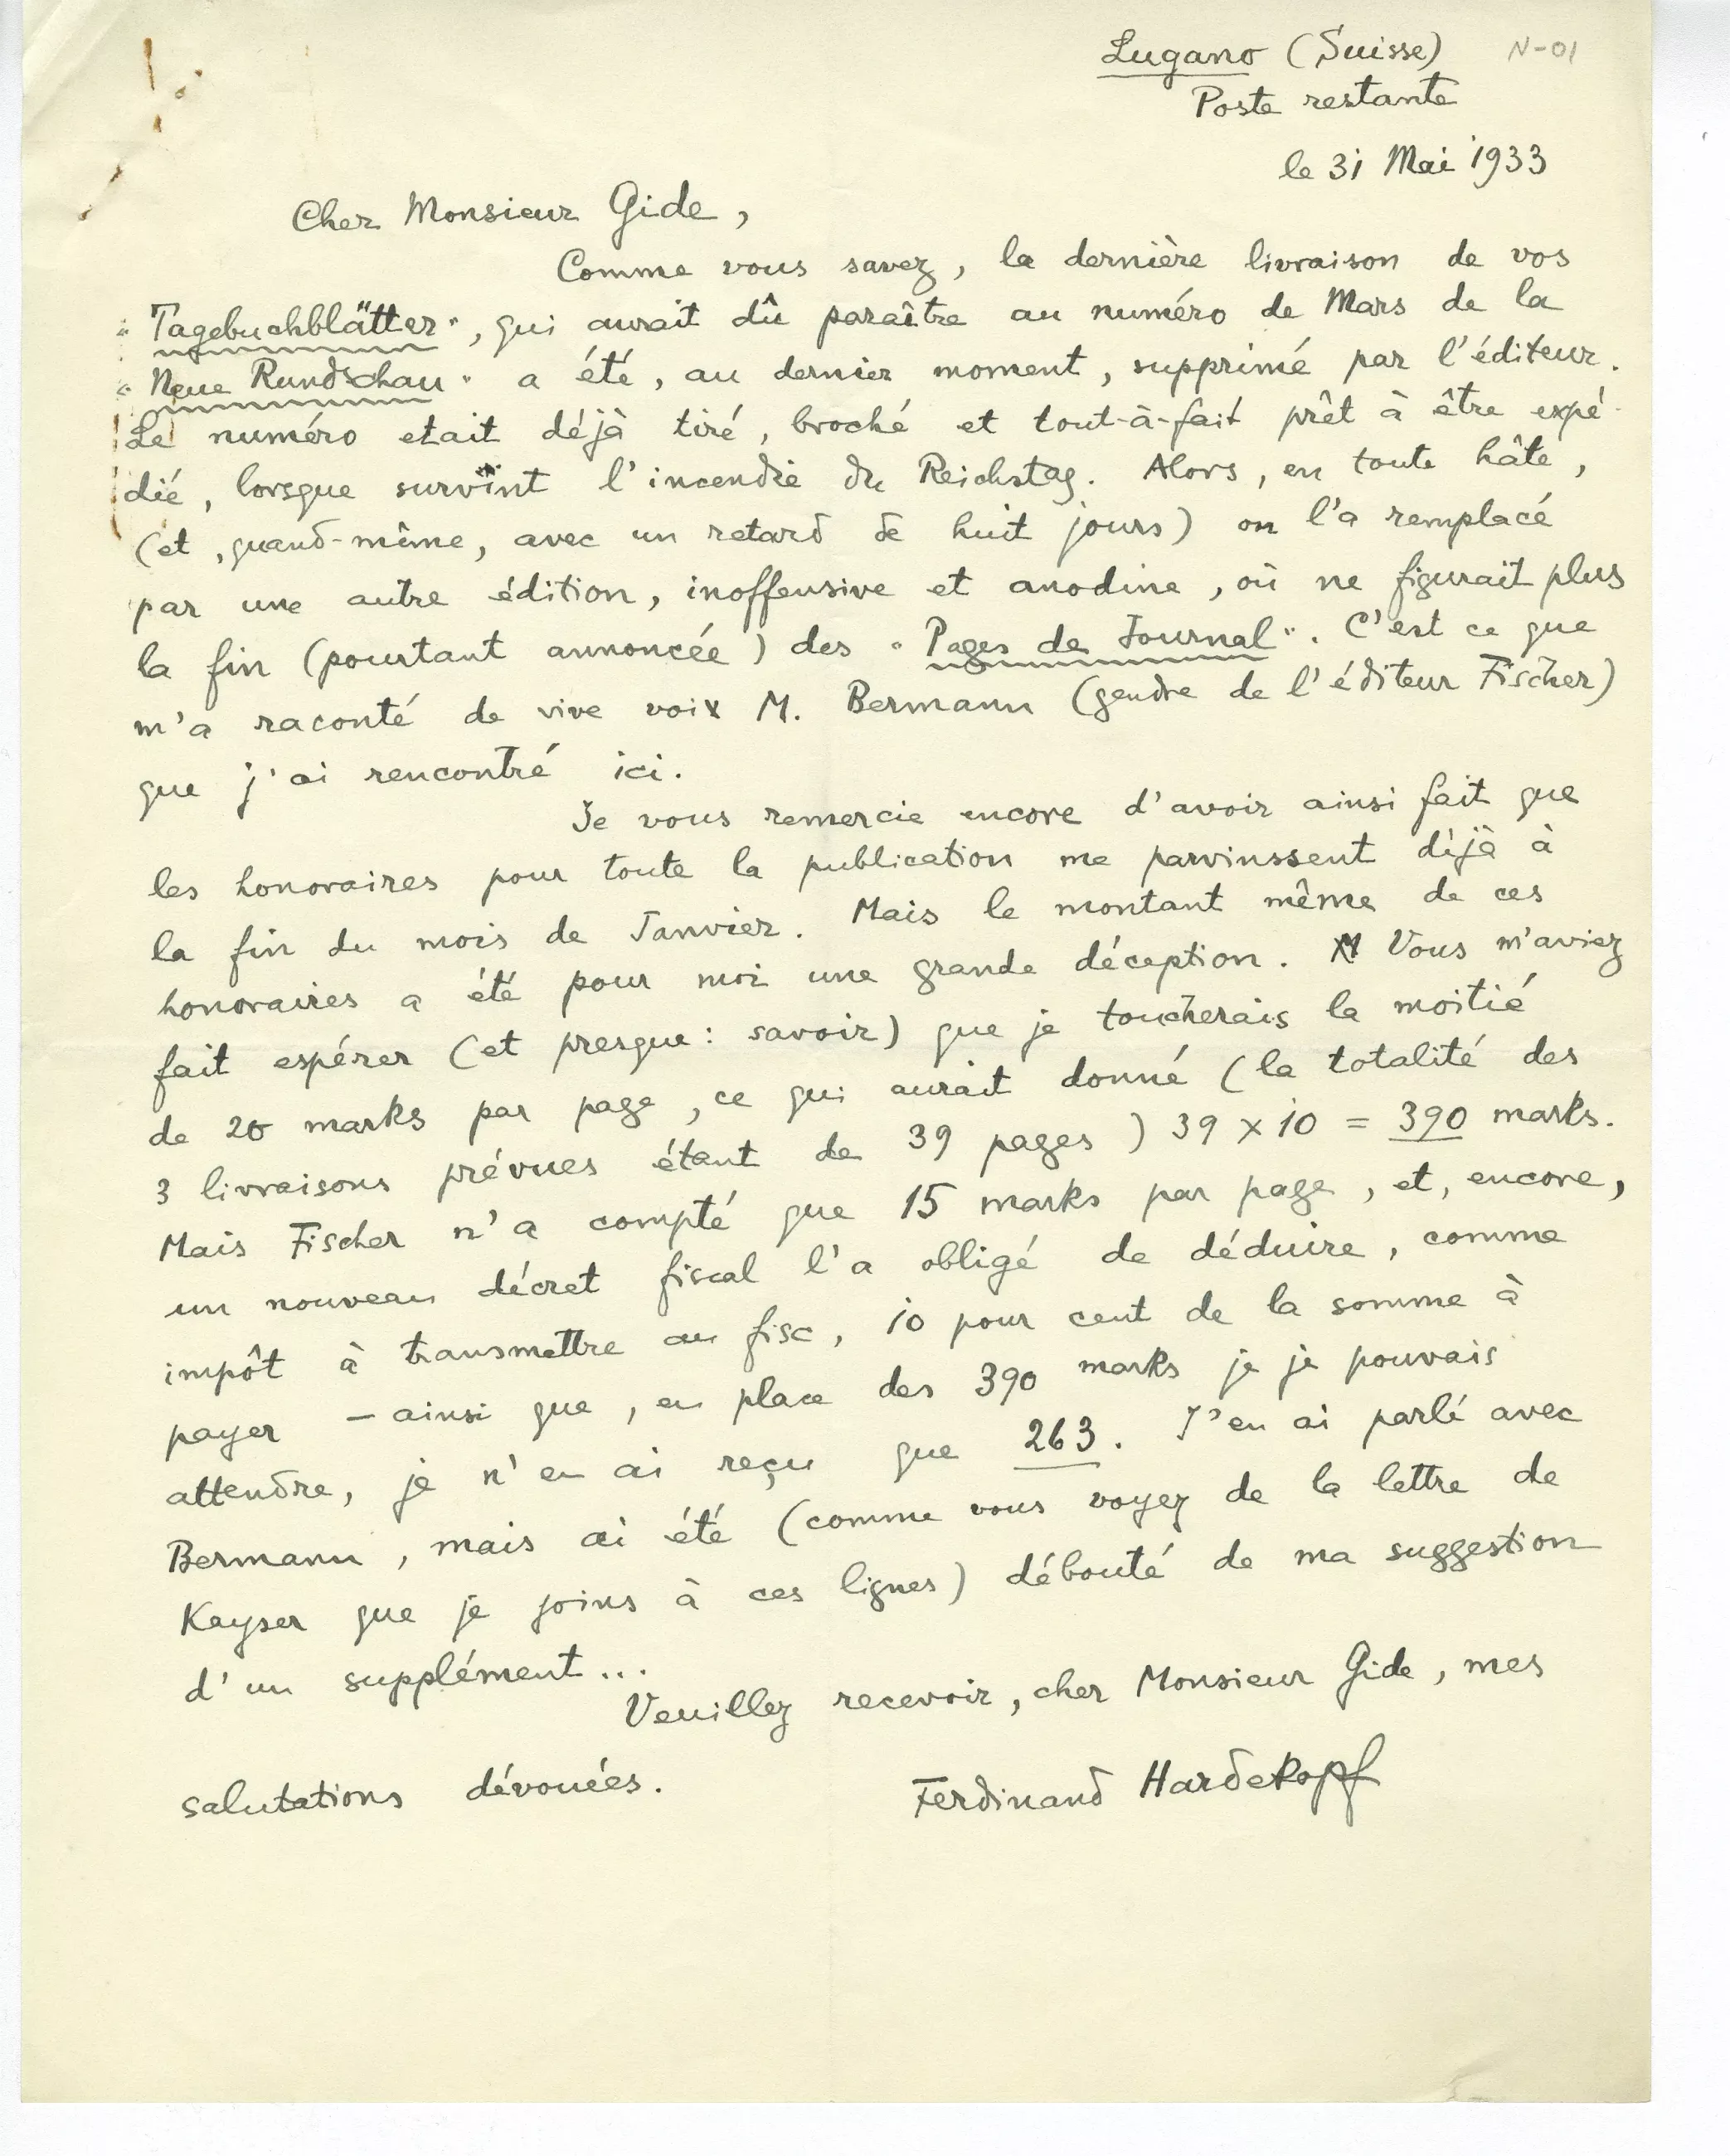 Lugano (Suisse) N-01
Poste restante
le 31 Mai 1933
Cher Monsieur Gide,
Comme vous savez, la dernière livraison de vos
"Tagebuchblätter", qui aurait dû paraître au numéro de Mars de la
"Neue Rundschau" a été, au dernier moment, supprimé par l'éditeur.
Le numéro etait déjà tiré, broché et tout-à-fait prêt à être expé-
dié, lorsque survint l'incendie du Reichstag. Alors, en toute hâte,
(et, quand-même, avec un retard de huit jours) on l'a remplacé
par une autre édition, inoffensive et anodine, où ne figurait plus
la fin (pourtant annoncée) des "Pages de Journal". C'est ce que
m'a raconté de vive voix M. Bermann (gendre de l'éditeur Fischer)
que j'ai rencontré ici.
Je vous remercie encore d'avoir ainsi fait que
les honoraires pour toute la publication me parvinssent déjà à
la fin du mois de Janvier. Mais le montant même de ces
honoraires a été pour moi une grande déception. Vous m'aviez
fait espérer (et presque: savoir) que je toucherais la moitié
de 20 marks par page, ce qui aurait donné (la totalité des
3 livraisons prévues étant de 39 pages) 39 x 10 = 390 marks.
Mais Fischer n'a compté que 15 marks par page, et, encore,
un nouveau décret fiscal l'a obligé de déduire, comme
impôt à transmettre au fisc, 10 pour cent de la somme à
payer – ainsi que, en place des 390 marks je je pouvais
attendre, je n'en ai reçu que 263. J'en ai parlé avec
Bermann, mais ai été (comme vous voyez de la lettre de
Kayser que je joins à ces lignes) débouté de ma suggestion
d'un supplément...
Veuillez recevoir, cher Monsieur Gide, mes
salutations dévouées.
Ferdinand Hardekopf